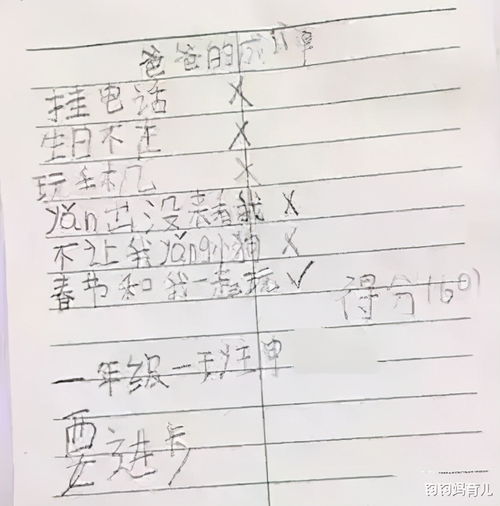 爸爸的成计单
挂电话 X
生日不在 X
玩手机 X
yǎn出没来看我 X
不让我yǎng小狗 X
春节和我一起玩 ✓
得分(60)
一年级一班
要进步
钧钧妈育儿